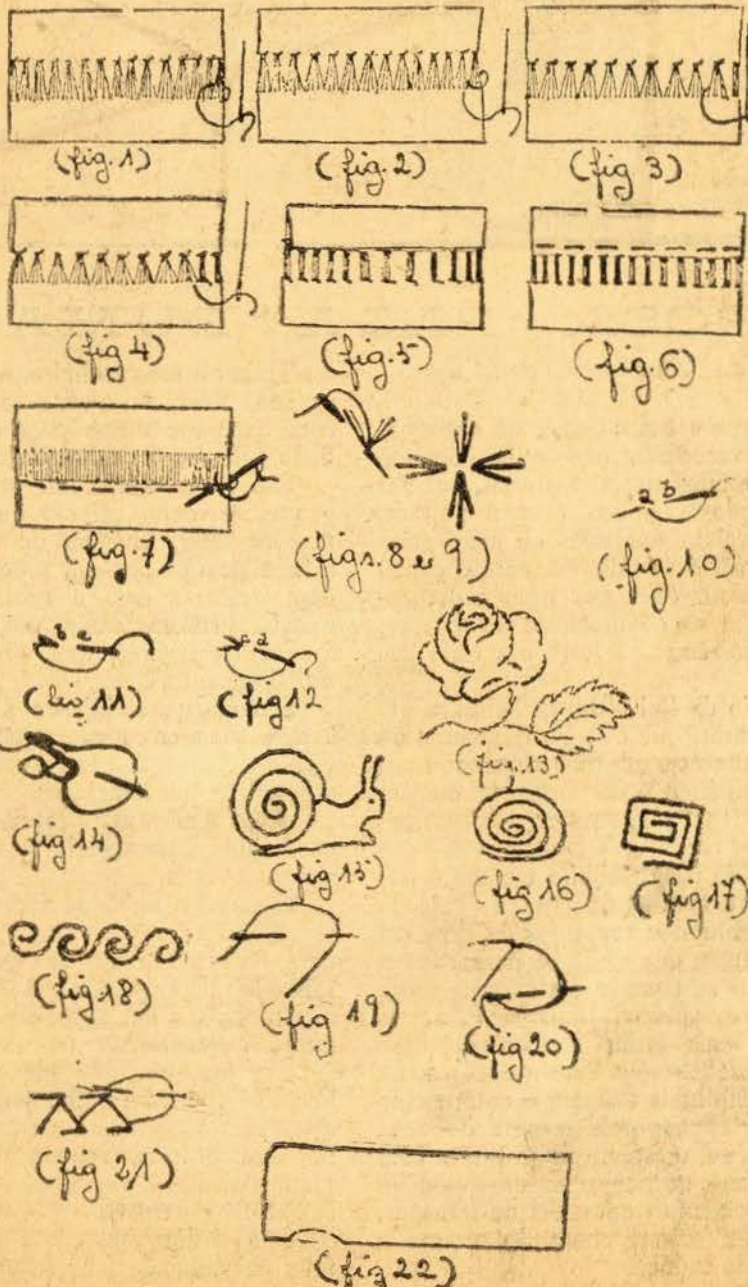 (fig. 1) (fig. 2) (fig 3)
(fig 4) (fig. 5) (fig. 6)
a b
(fig. 7) (figs. 8 e 9) (fig. 10)
b a c a
(fig 11) (fig 12 (fig. 13)
(fig 14) (fig 15) (fig 16) (fig 17)
(fig. 18) (fig 19) (fig 20)
(fig 21)
(fig 22)